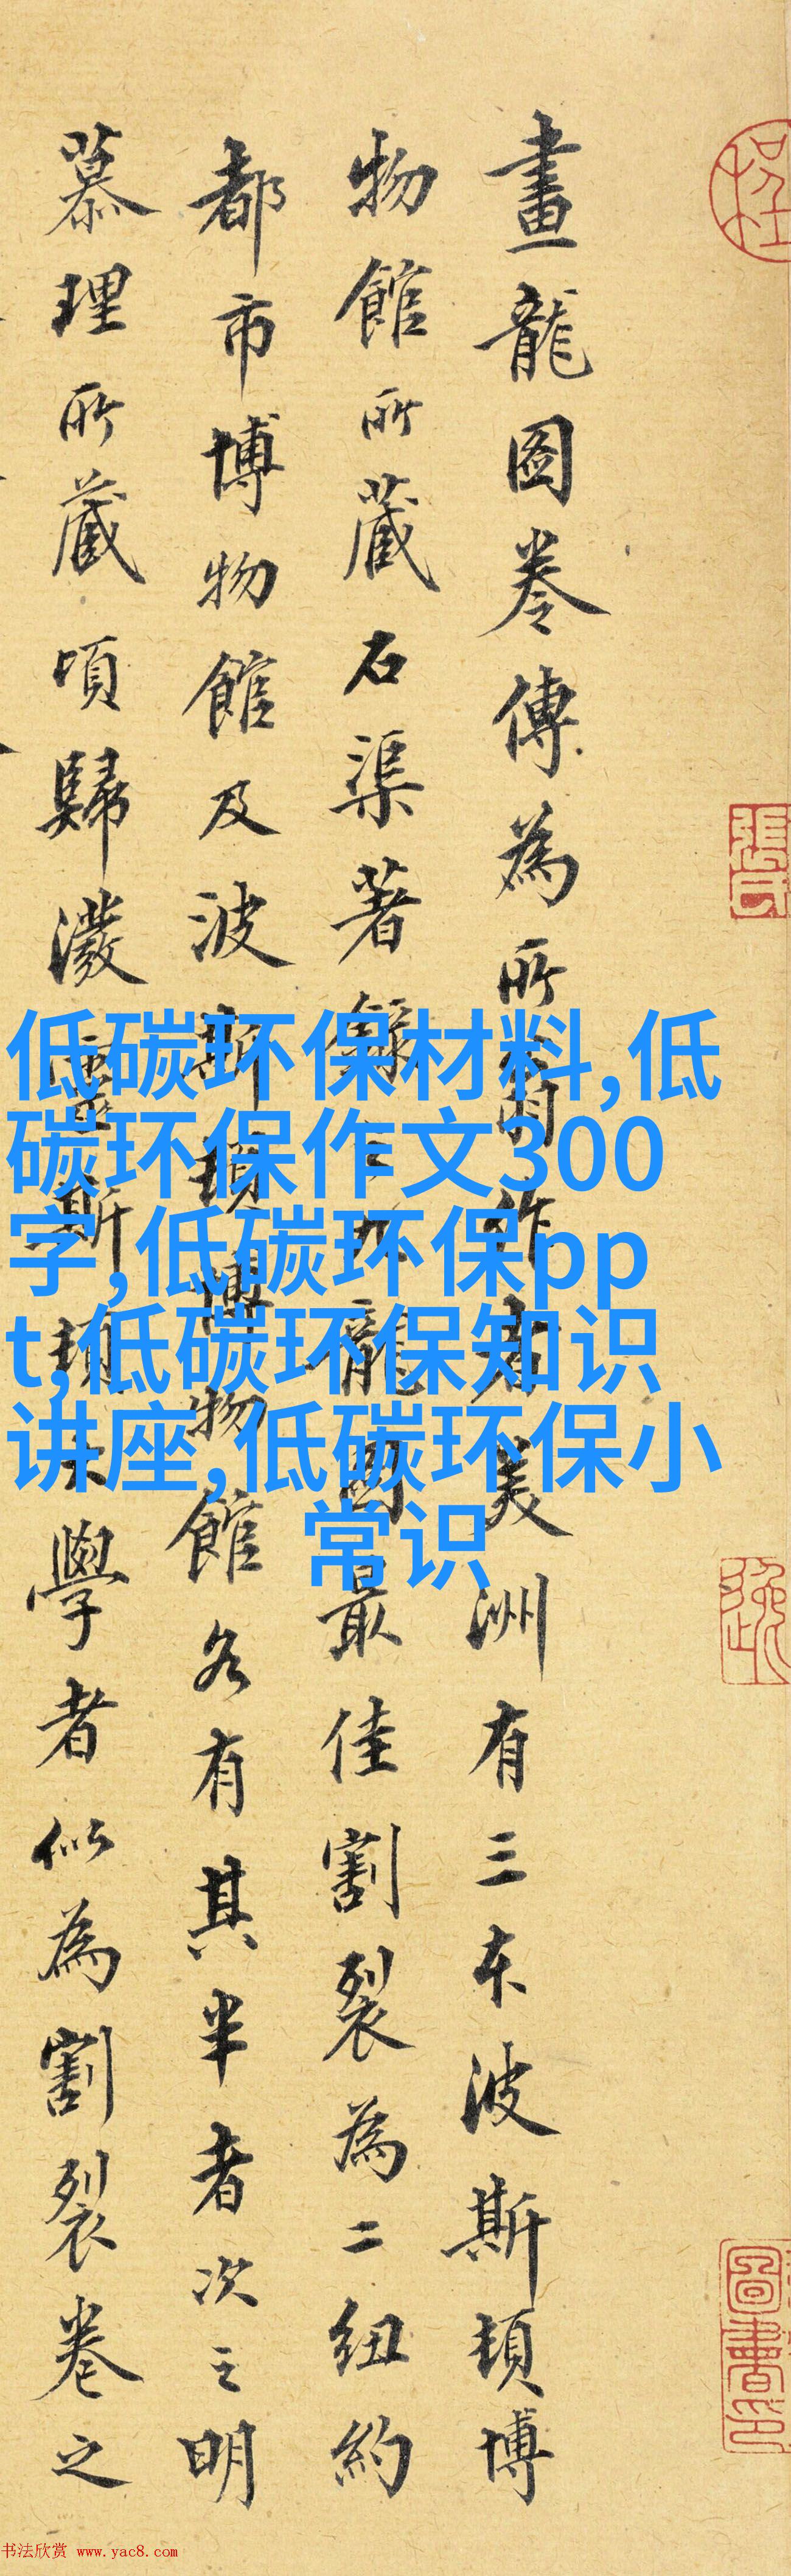 畫龍圖卷傳為所翁作者美洲有三本波斯頓博
物館所藏石渠著錄之九龍圖最佳割裂為二紐約
都市博物館及波斯頓博物館各有其半者次之明
慕理所藏頃歸潑靈斯頓大學者似為割裂卷之
低碳环保材料,低
碳环保作文300
字,低碳环保pp
t,低碳环保知识
讲座,低碳环保小
常识
張氏
圖書印
书法欣赏 www.yac8.com